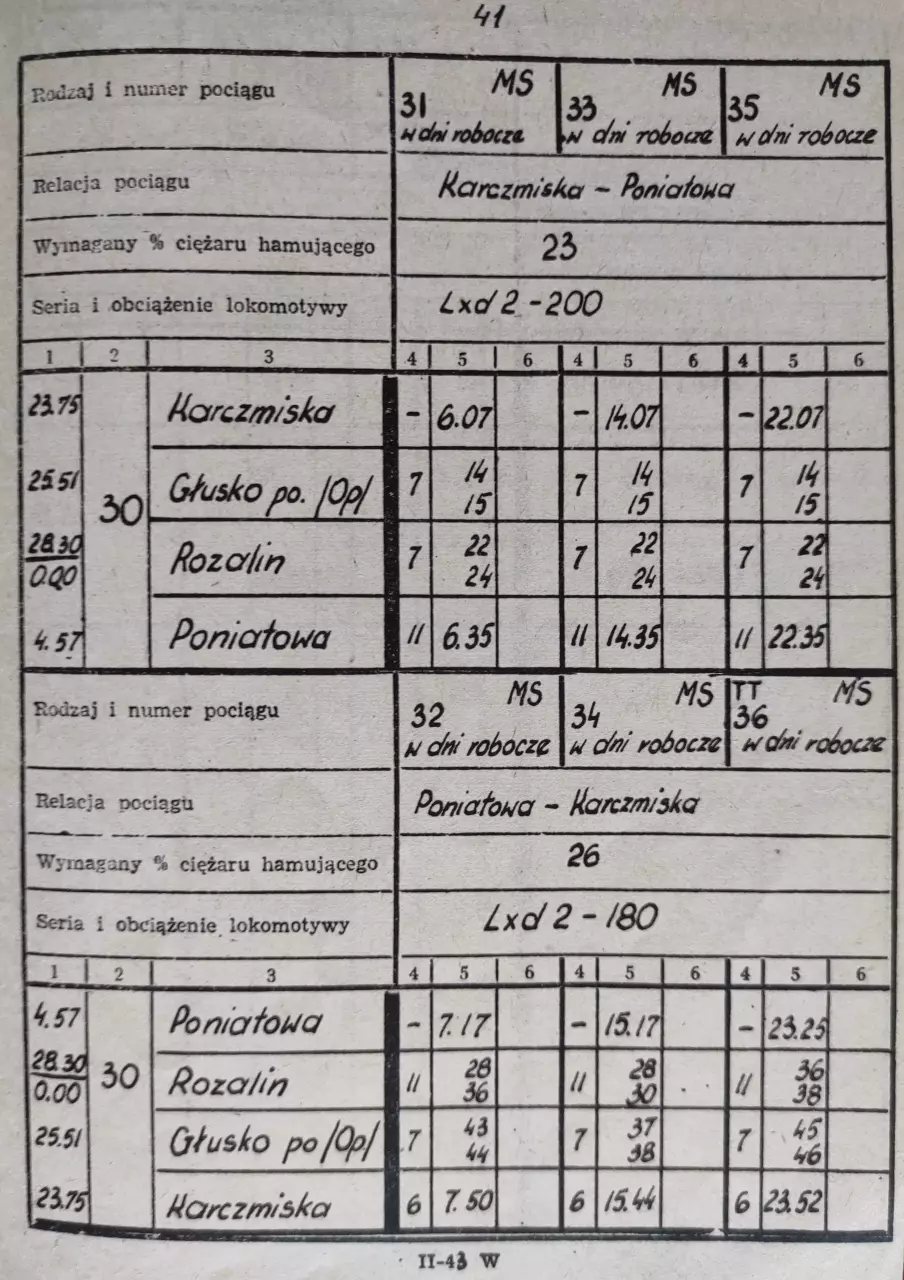 41
Rodzaj i numer pociągu
MS MS MS
31 33 35
w dni robocze w dni robocze w dni robocze
Relacja pociągu Karczmiska - Poniatowa
Wymagany % ciężaru hamującego 23
Seria i obciążenie lokomotywy Lxd2 - 200
1 2 3 4 5 6 4 5 6 4 5 6
23.75 Karczmiska - 6.07 - 14.07 - 22.07
25.51 Głusko po. /Op/ 7 14 7 14 7 14
30 15 15 15
28.30 Rozalin 7 22 7 22 7 22
0.00 24 24 24
4.57 Poniatowa 11 6.35 11 14.35 11 22.35
Rodzaj i numer pociągu
MS MS TT MS
32 34 36
w dni robocze w dni robocze w dni robocze
Relacja pociągu Poniatowa - Karczmiska
Wymagany % ciężaru hamującego 26
Seria i obciążenie lokomotywy Lxd2 - 180
1 2 3 4 5 6 4 5 6 4 5 6
4.57 Poniatowa - 7.17 - 15.17 - 23.25
28.30 30 Rozalin 11 28 11 28 11 36
0.00 36 30 38
25.51 Głusko po /Op/ 7 43 7 37 7 45
44 38 46
23.75 Karczmiska 6 7.50 6 15.44 6 23.52
II-43 W